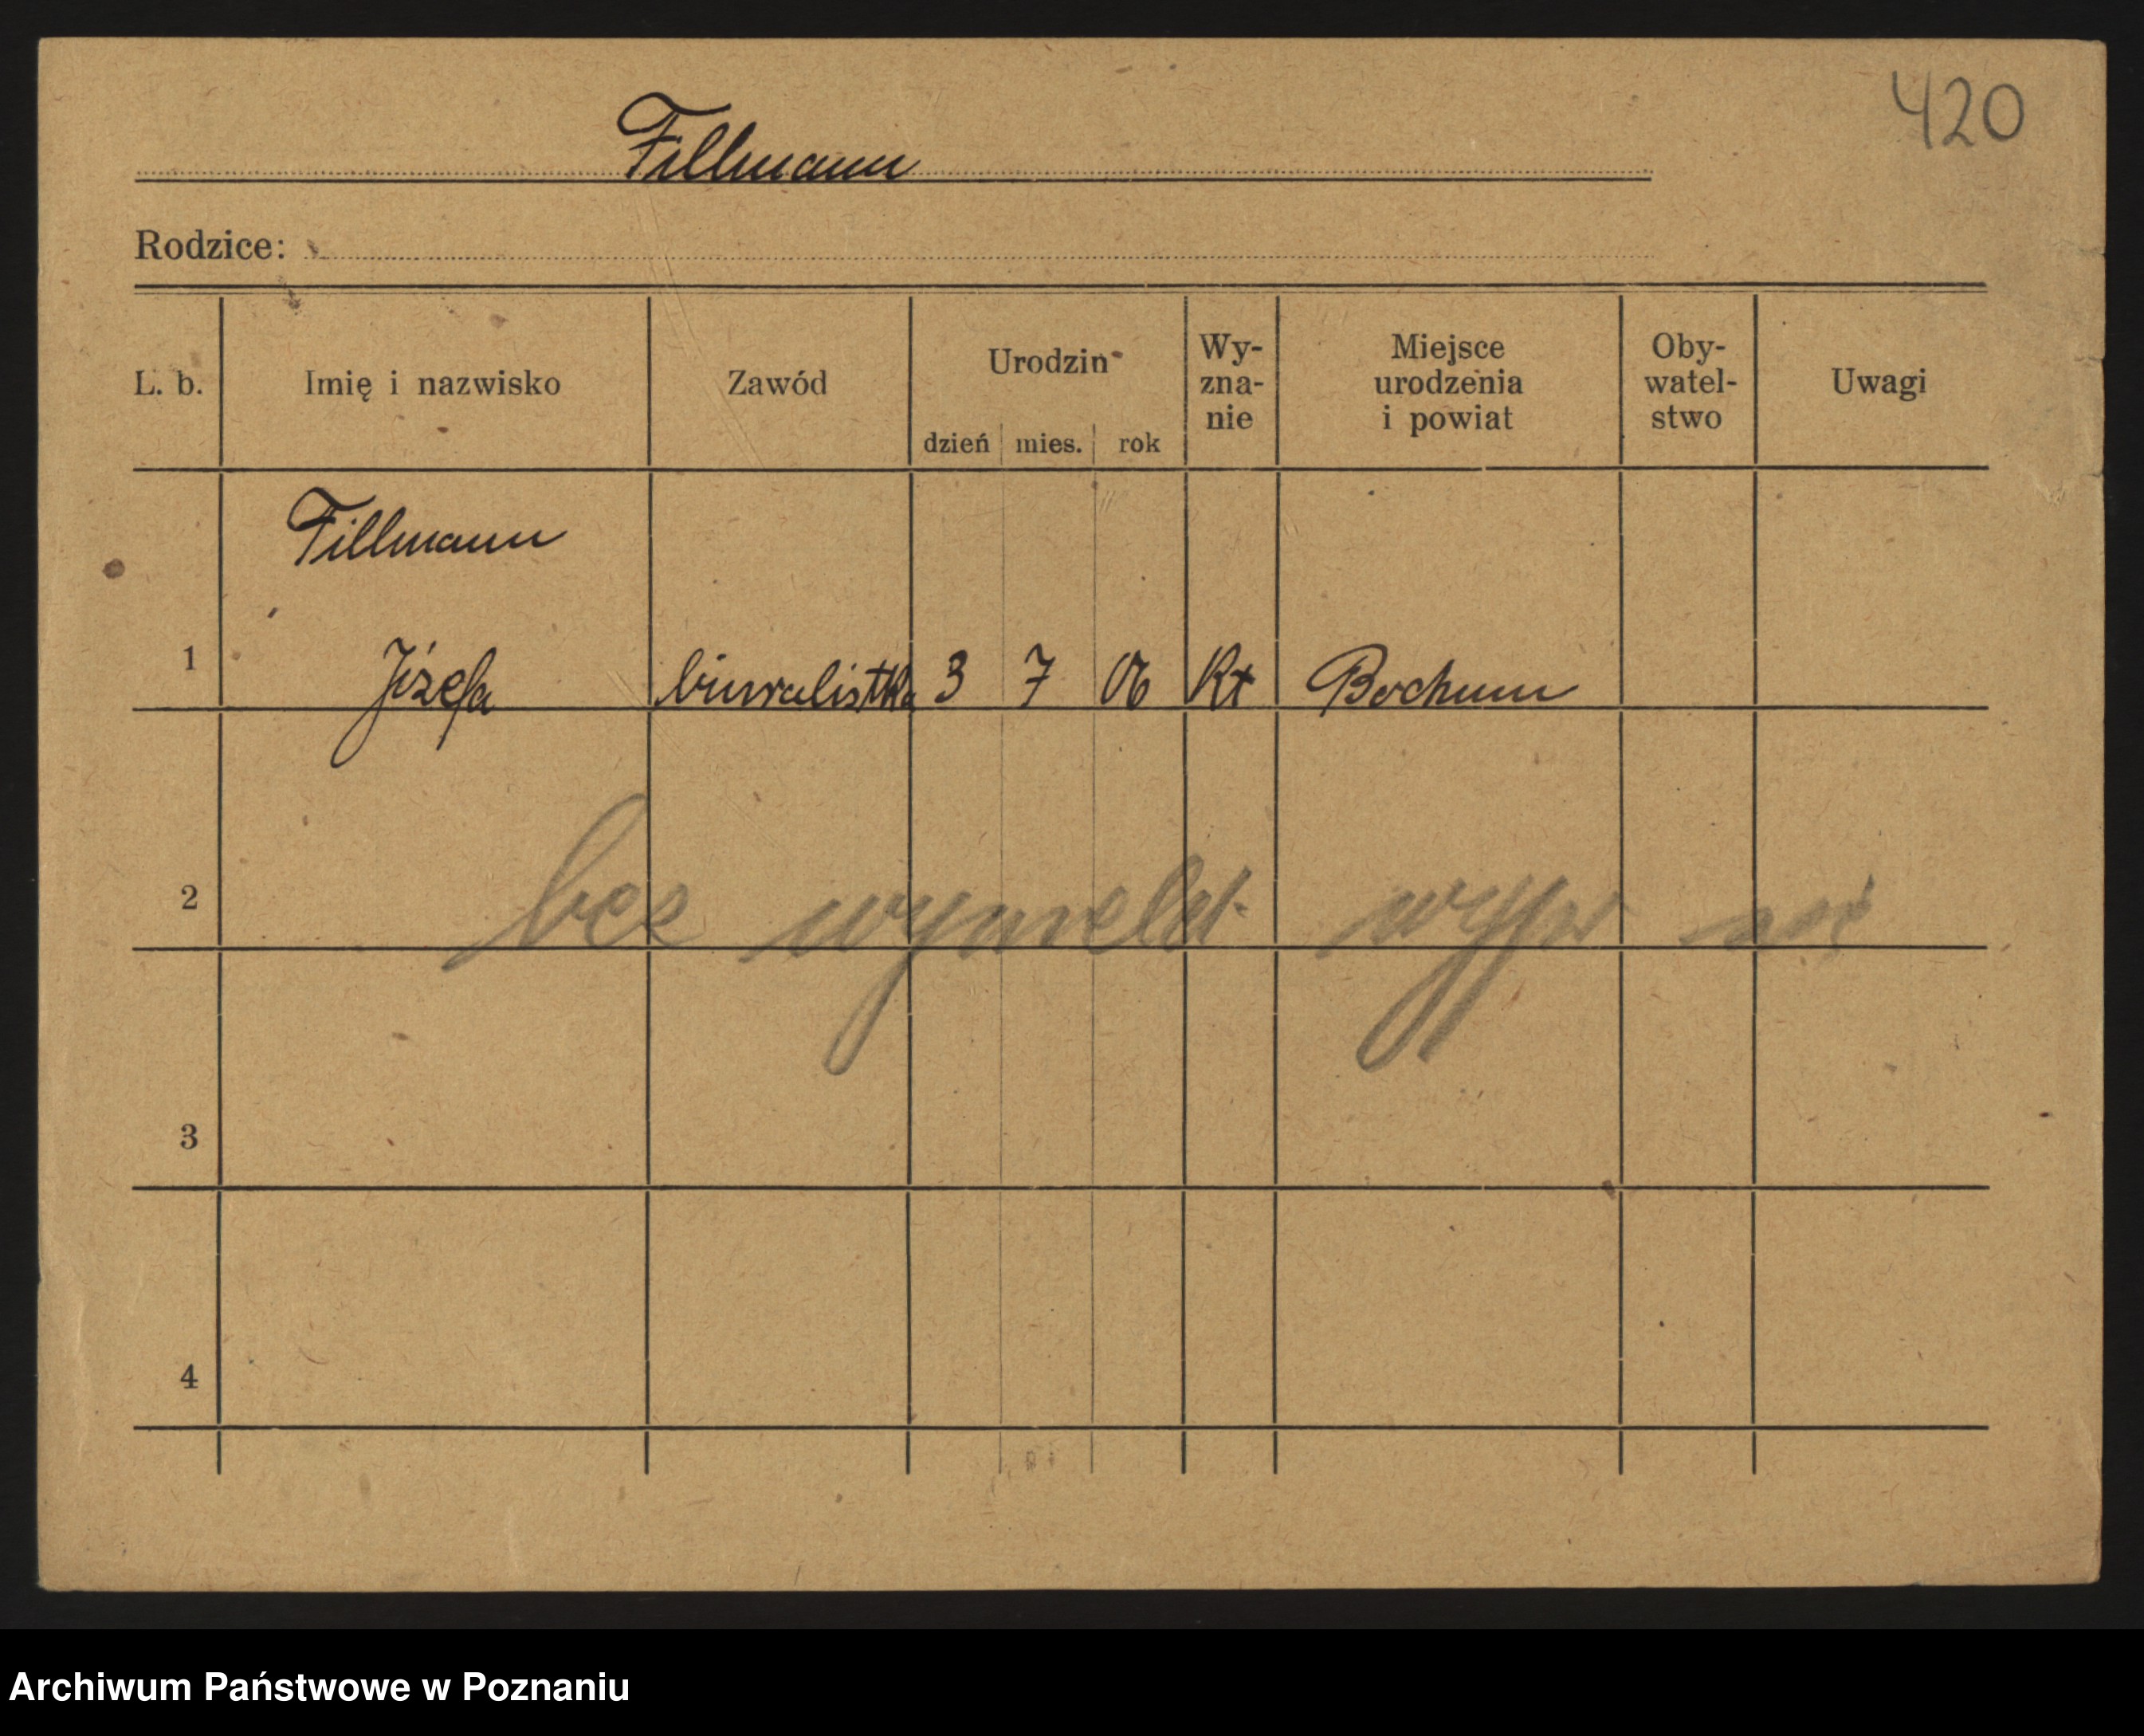 420
Fillmann
Rodzice:
L. b. Imię i nazwisko Zawód Urodzin Wy-zna-nie Miejsce urodzenia i powiat Oby-watel-stwo Uwagi
dzień mies. rok
Fillmann
1 Józefa biuralistka 3 7 06 Kt Bochum
2 bez wymeld.
3
4
Archiwum Państwowe w Poznaniu